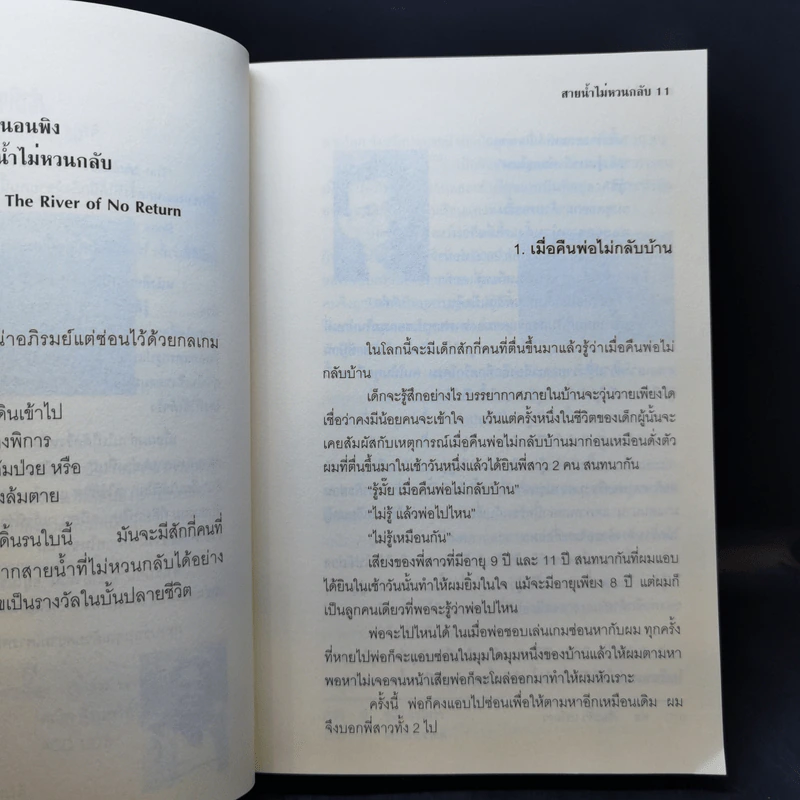 นอนพิง
น้ำไม่หวนกลับ
The River of No Return
น่าอภิรมย์แต่ซ่อนไว้ด้วยกลเกม
ดินเข้าไป
งพิการ
ล้มป่วย หรือ
งล้มตาย
ดิ้นรนใบนี้ มันจะมีสักกี่คนที่
ากสายน้ำที่ไม่หวนกลับได้อย่าง
ขเป็นรางวัลในบั้นปลายชีวิต
สายน้ำไม่หวนกลับ 11
1. เมื่อคืนพ่อไม่กลับบ้าน
ในโลกนี้จะมีเด็กสักกี่คนที่ตื่นขึ้นมาแล้วรู้ว่าเมื่อคืนพ่อไม่
กลับบ้าน
เด็กจะรู้สึกอย่างไร บรรยากาศภายในบ้านจะวุ่นวายเพียงใด
เชื่อว่าคงมีน้อยคนจะเข้าใจ เว้นแต่ครั้งหนึ่งในชีวิตของเด็กผู้นั้นจะ
เคยสัมผัสกับเหตุการณ์เมื่อคืนพ่อไม่กลับบ้านมาก่อนเหมือนดั่งตัว
ผมที่ตื่นขึ้นมาในเช้าวันหนึ่งแล้วได้ยินพี่สาว 2 คน สนทนากัน
“รู้มั้ย เมื่อคืนพ่อไม่กลับบ้าน”
“ไม่รู้ แล้วพ่อไปไหน”
“ไม่รู้เหมือนกัน”
เสียงของพี่สาวที่มีอายุ 9 ปี และ 11 ปี สนทนากันที่ผมแอบ
ได้ยินในเช้าวันนั้นทำให้ผมยิ้มในใจ แม้จะมีอายุเพียง 8 ปี แต่ผมก็
เป็นลูกคนเดียวที่พอจะรู้ว่าพ่อไปไหน
พ่อจะไปไหนได้ ในเมื่อพ่อชอบเล่นเกมซ่อนหากับผม ทุกครั้ง
ที่หายไปพ่อก็จะแอบซ่อนในมุมใดมุมหนึ่งของบ้านแล้วให้ผมตามหา
พอหาไม่เจอจนหน้าเสียพ่อก็จะโผล่ออกมาทำให้ผมหัวเราะ
ครั้งนี้ พ่อก็คงแอบไปซ่อนเพื่อให้ตามหาอีกเหมือนเดิม ผม
จึงบอกพี่สาวทั้ง 2 ไป